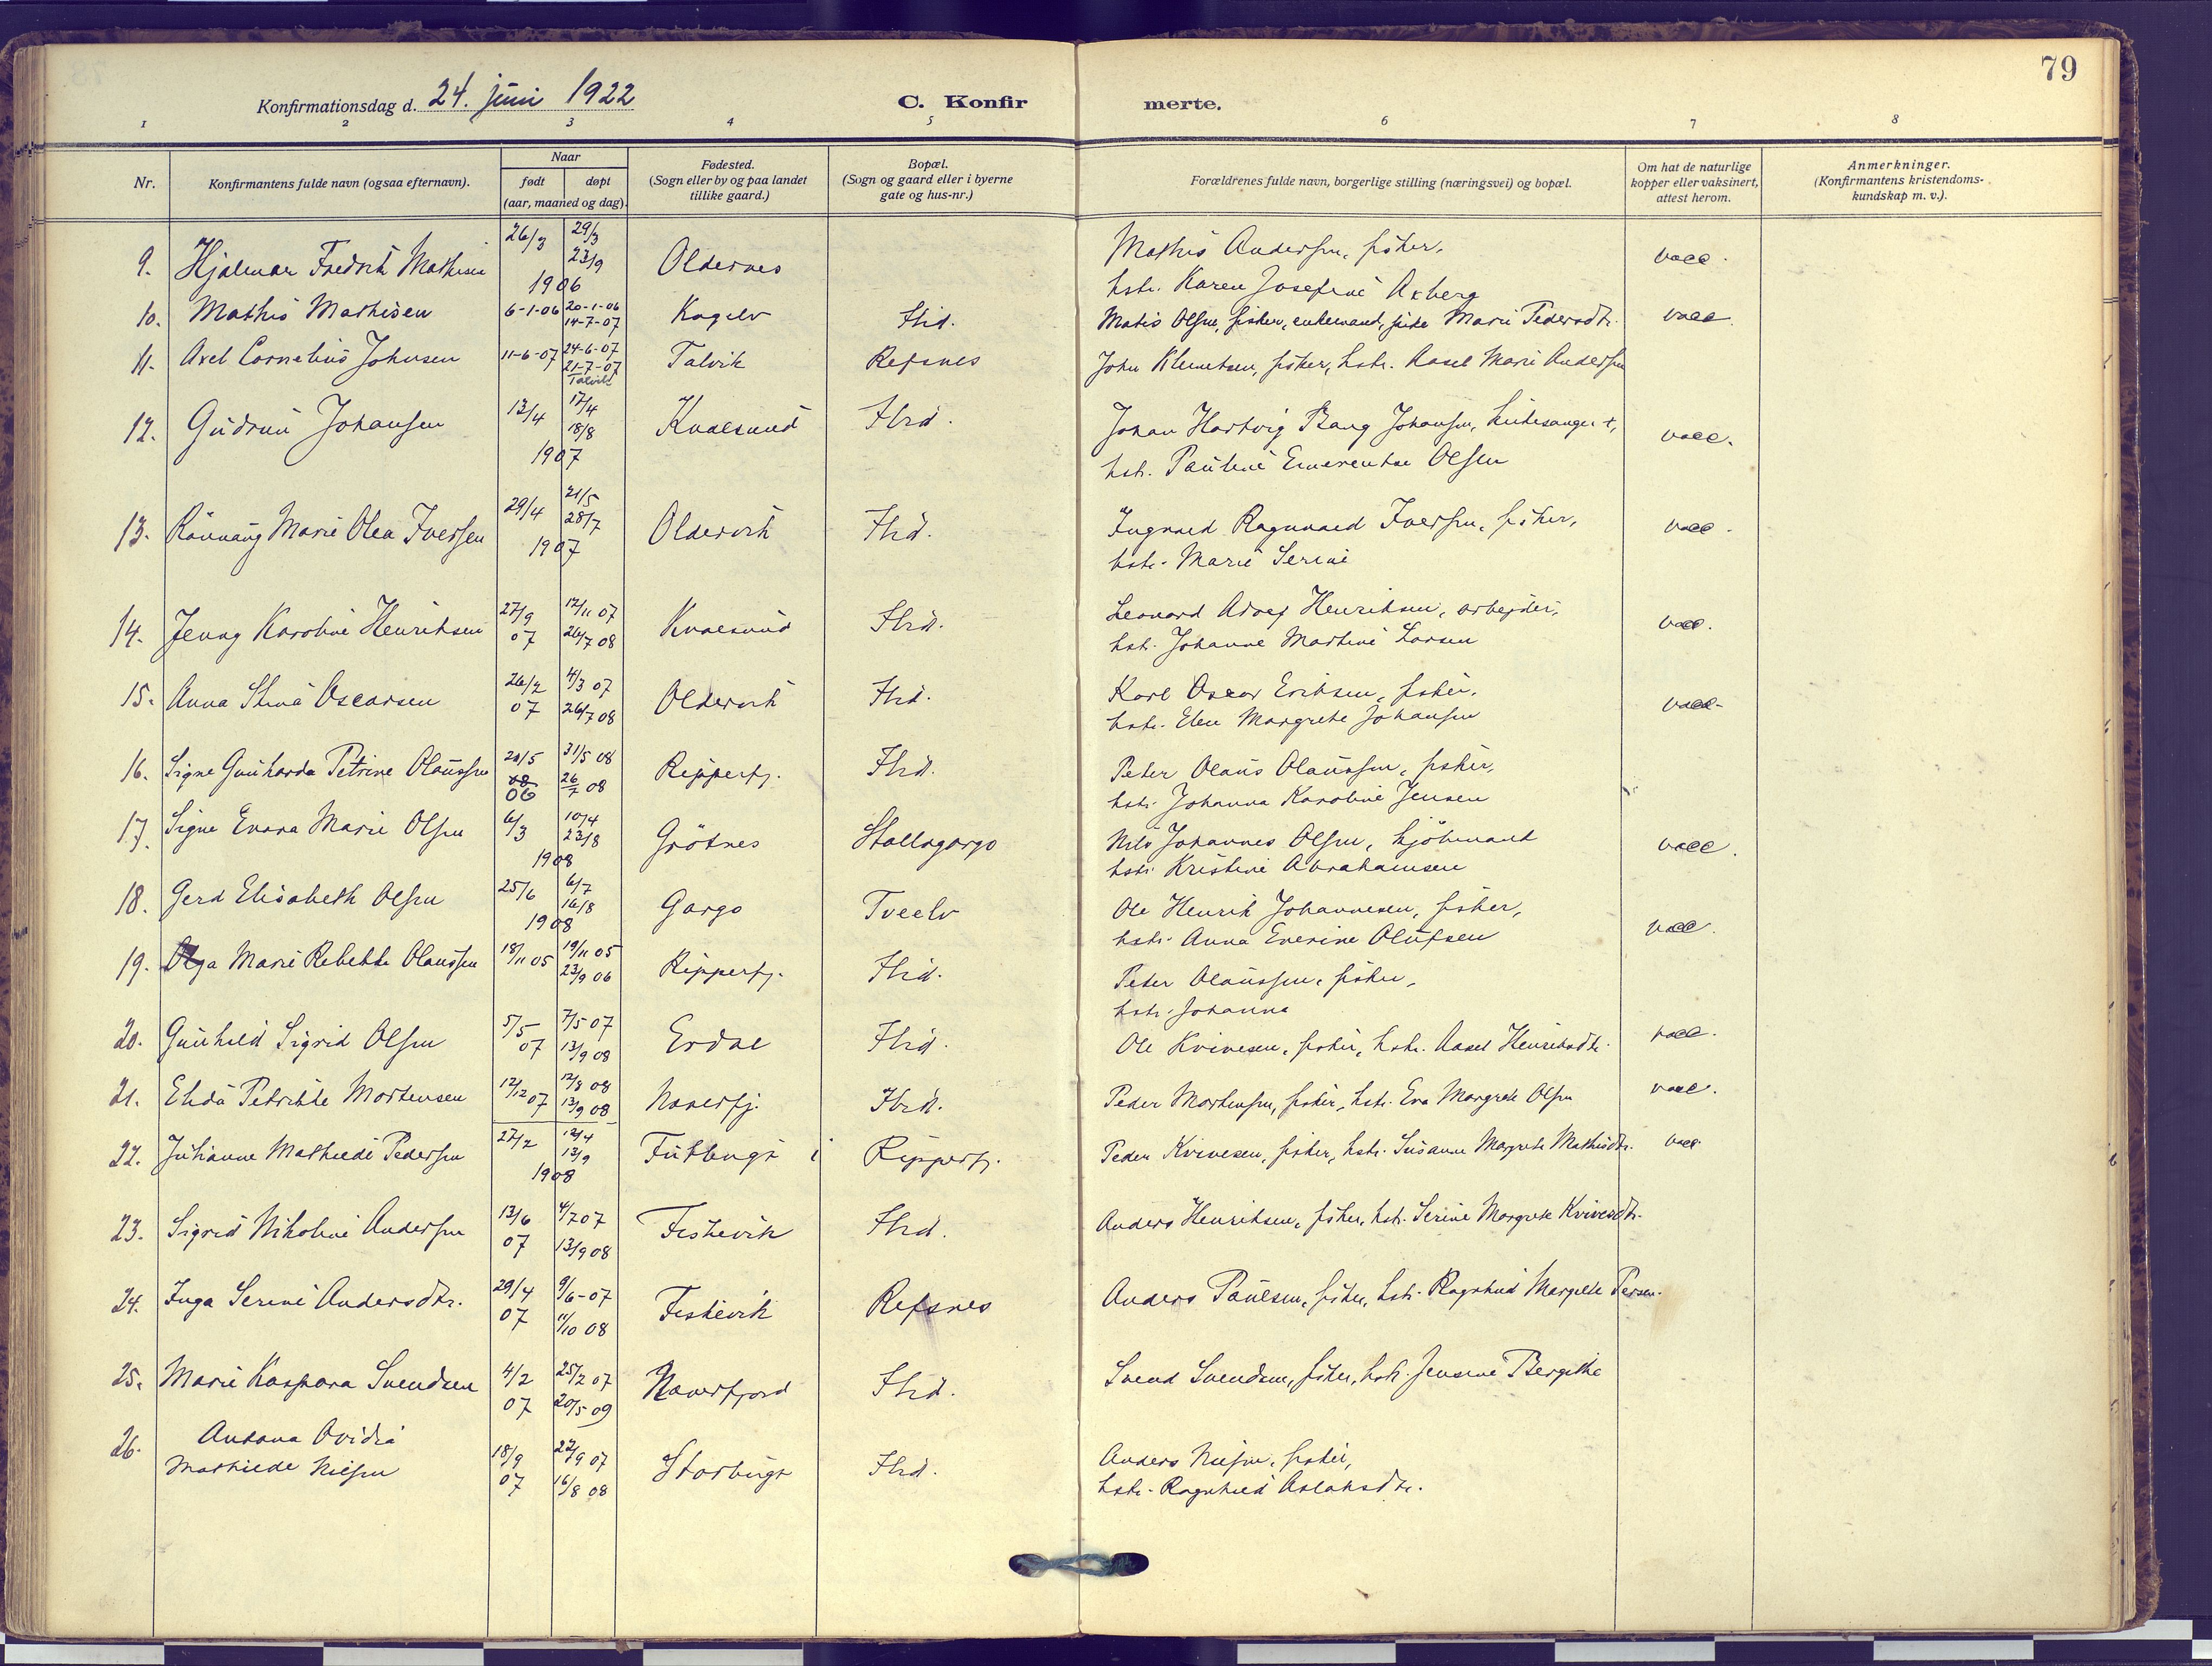 79
Konfirmationsdag d. 24. juni 1922
C. Konfir merte.
1 2 3 4 5 6 7 8
Nr.
Konfirmantens fulde navn (ogsaa efternavn).
Naar
født døpt
(aar, maaned og dag).
Fødested.
(Sogn eller by og paa landet
tillike gaard.)
Bopæl.
(Sogn og gaard eller i byerne
gate og hus-nr.)
Forældrenes fulde navn, borgerlige stilling (næringsvei) og bopæl.
Om hat de naturlige
kopper eller vaksinert,
attest herom.
Anmerkninger.
(Konfirmantens kristendoms-
kundskap m. v.).
9. Hjalmar Fredrik Mathisen 26/3 29/3 23/9 1906 Oldernes Mathis Andersen, fisker, vacc.
hstr. Karen Josefine Axberg
10. Mathis Mathisen 6-1-06 20-1-06 14-7-07 Kogelv Ibid. Matis Olsen, fisker, enkemand, pike Marie Pedersdtr. vacc.
11. Axel Cornelius Johnsen 11-6-07 24-6-07 21-7-07 Talvik Talvik Refsnes John Klemetsen, fisker, hstr. Aasel Marie Andersen
12. Gudrun Johansen 13/4 17/4 18/8 1907 Kvalsund Ibid. Johan Hartvig Bang Johansen, kirkesanger +, vacc.
hstr. Pauline Emerentse Olsen
13. Rönnaug Marie Olea Iversen 29/4 21/5 28/7 1907 Oldervik Ibid. Ingvald Ragnvald Iversen, fisker, vacc.
hstr. Marie Serine
14. Jenny Karoline Henriksen 27/9 07 12/11 07 26/7 08 Kvalsund Ibid. Leonard Adolf Henriksen, arbejder, vacc.
hstr. Johanne Martine Larsen
15. Anna Stina Oscarsen 26/2 07 4/3 07 26/7 08 Oldervik Ibid. Karl Oscar Eriksen, fisker, vacc.
hstr. Elen Margrete Johansen
16. Signe Gunharda Petrine Olaussen 20/5 08 06 31/5 08 26/7 08 Ripperfj. Ibid. Peter Olaus Olaussen, fisker,
hstr. Johanna Karoline Jensen
17. Signe Evora Marie Olsen 6/3 10/4 23/8 1908 Grötnes Stallogargo Nils Johannes Olsen, kjöbmand vacc.
hstr. Kristine Abrahamsen
18. Gerd Elisabeth Olsen 25/6 6/7 16/8 1908 Gargo Tveelv Ole Henrik Johannesen, fisker, vacc.
hstr. Anna Everine Olufsen
19. Olga Marie Rebekka Olaussen 18/11 05 19/11 05 23/9 06 Ripperfj. Ibid. Peder Olaussen, fisker,
hstr. Johanna
20. Gunhild Sigrid Olsen 5/5 07 7/5 07 13/9 08 Erdal Ibid. Ole Kvivesen, fisker, hstr. Aasel Henriksdtr. vacc.
21. Elida Petrikke Mortensen 12/12 07 12/8 08 13/9 08 Naverfj. Ibid. Peder Mortensen, fisker, hstr. Eva Margrete Olsen vacc.
22. Julianne Mathilde Pedersen 27/2 12/4 13/9 1908 i Ripperfj. Peder Kvivesen, fisker, hstr. Susanne Margrete Mathisdtr. vacc.
23. Sigrid Nikoline Andersen 13/6 07 4/7 07 13/9 08 Fiskevik Ibid. Anders Henriksen, fisker, hstr. Serine Margrete Kvivesdtr.
24. Inga Serine Andersdtr. 29/4 07 9/6-07 11/10 08 Fiskevik Refsnes Anders Paulsen, fisker, hstr. Ragnhild Margrete Persen.
25. Marie Kaspara Svendsen 4/2 07 25/2 07 20/5 09 Naverfjord Ibid. Svend Svendsen, fisker, hstr. Jensine Bergitte
26. Antona Ovidia
Mathilde Nilsen 18/9 07 22/9 07 16/8 08 Storbugt Ibid. Anders Nilsen, fisker,
hstr. Ragnhild Aslaksdtr.